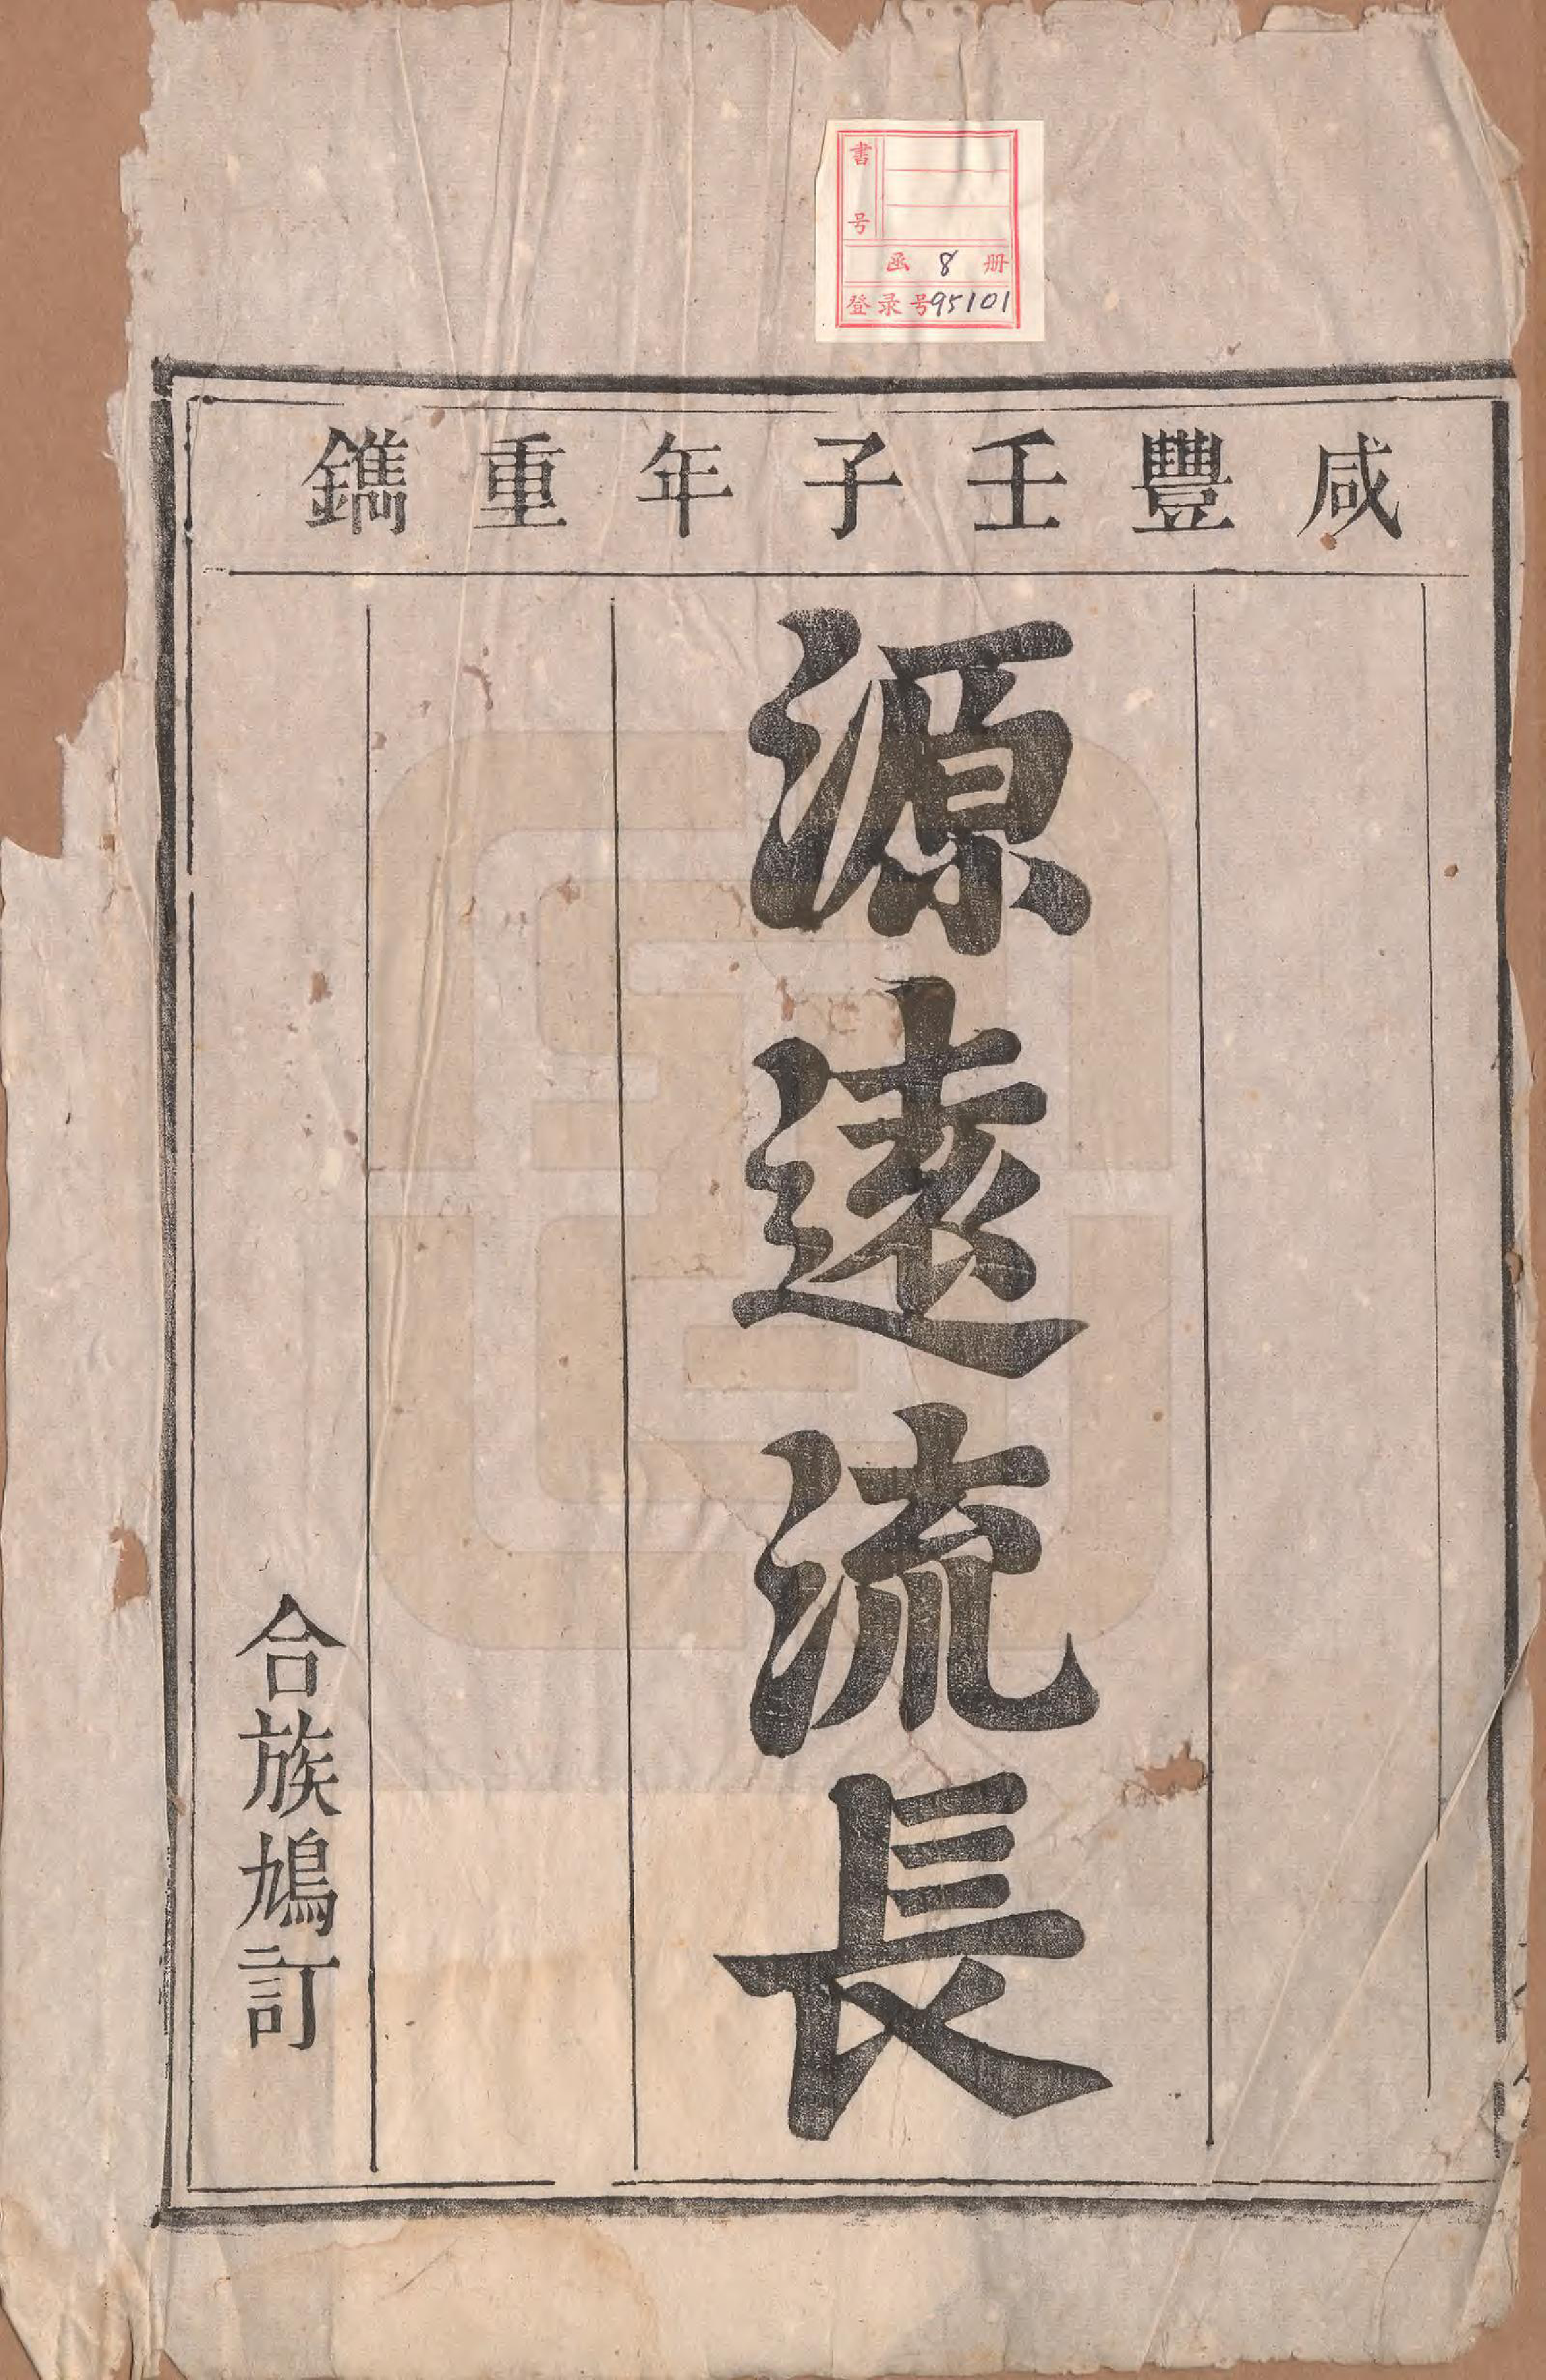 書号
函 8 册
登录号95101
咸豐壬子年重鐫
源遠流長
合族鳩訂